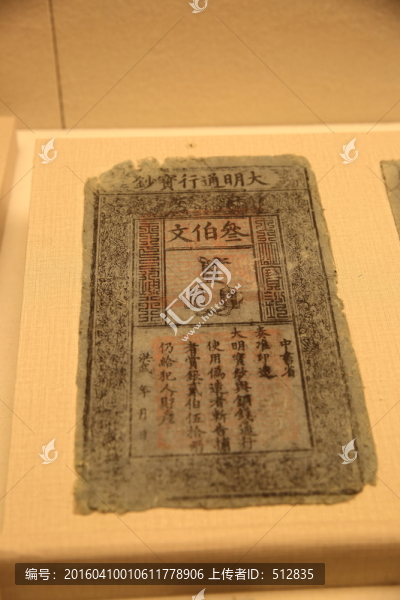 大明通行寶鈔
叁伯文
中書省
奏准印造
大明寶鈔與銅錢通行
使用僞造者斬告捕
者賞銀貳伯伍拾兩
仍給犯人財產
洪武 年 月 日
汇图网
www.huitu.com
编号：20160410010611778906 上传者ID：512835